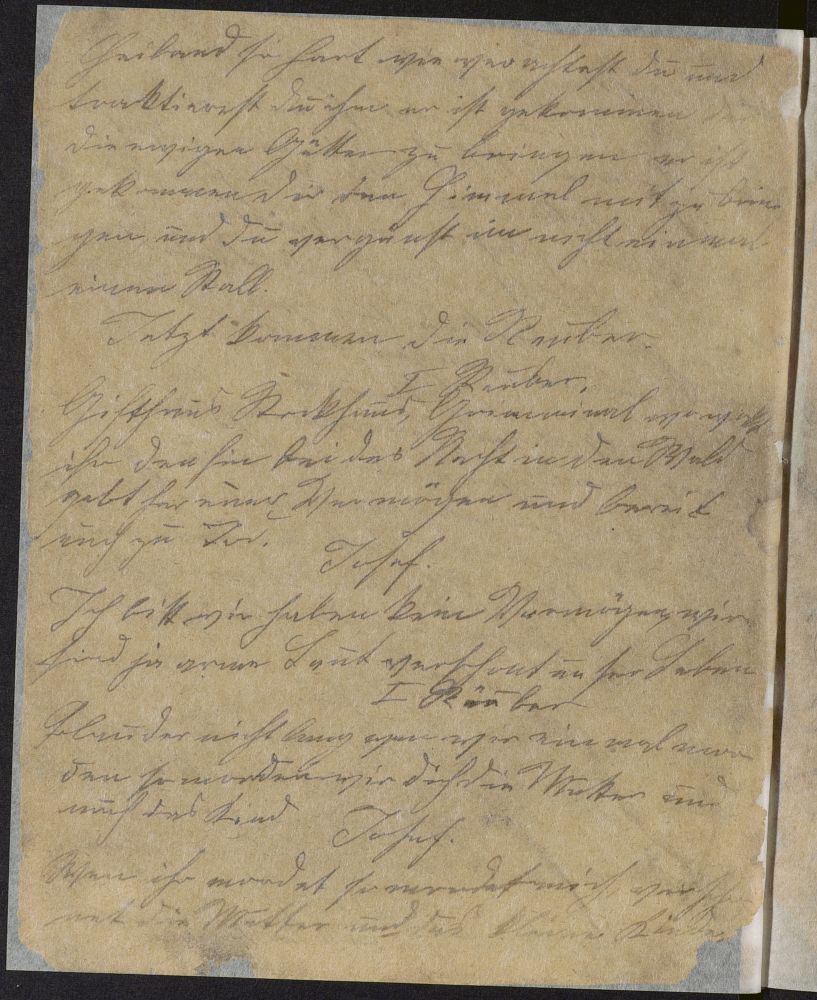 Heiland so hart wie verachtest du und
traktierest du ihn er ist gekommen dir
die ewigen Götter zu bringen er ist
gekommen dir den Himmel mit zu brin
gen und du vergünst im nicht einmal
einen Stall.
Jetzt kommen die Reuber.
I Reuber.
Gifthaus Stockhaus, Griminal wo wolt
ihr den hin bei der Nacht in den Wald
gebt her euer Vermögen und bereit
euch zu Tod.
Josef.
Ich bitt wir haben kein Vermögen, wir
sind ja arme Leut verschont unser Leben
I Räuber
Plauder nicht lang wen wir einmal mor
den so morden wir dich die Mutter und
auch das Kind
Josef.
Wen ihr mordet so mordet mich, verscho
net die Mutter und das kleine Kindlein